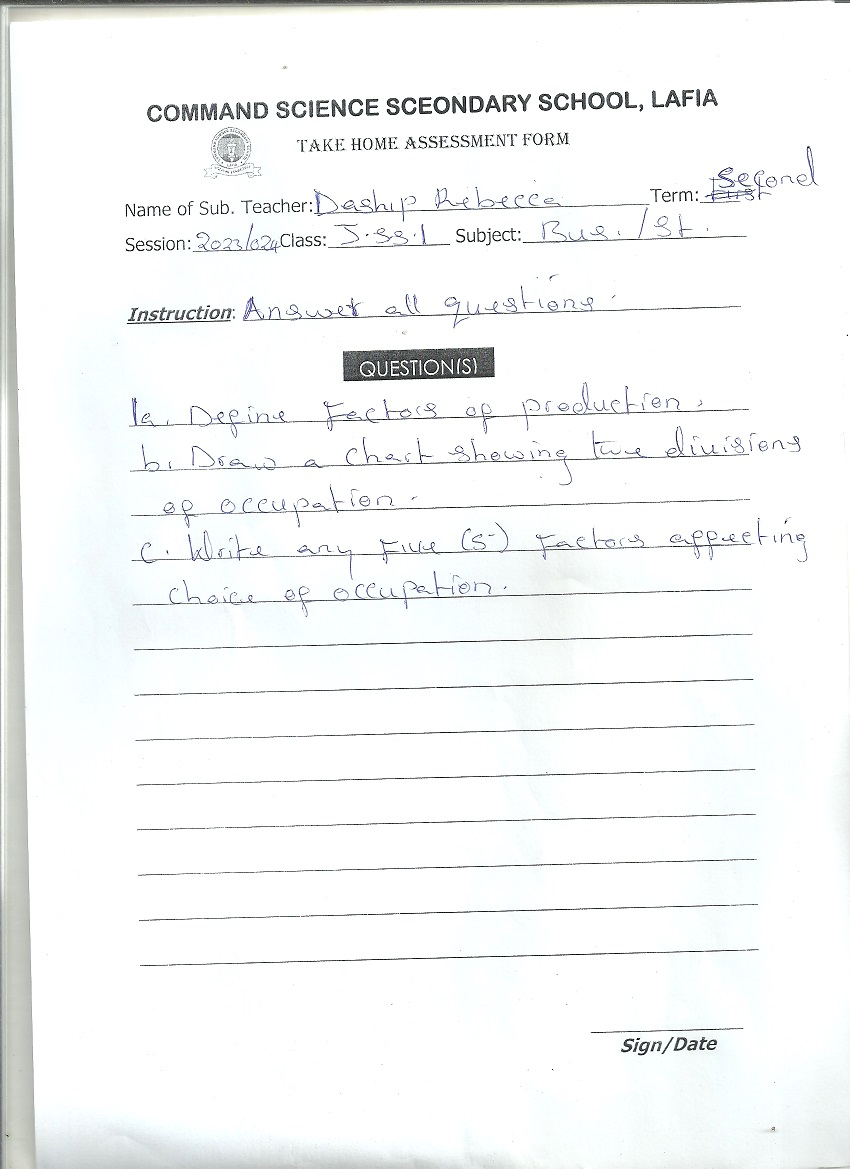 COMMAND SCIENCE SCEONDARY SCHOOL, LAFIA
TAKE HOME ASSESSMENT FORM
Name of Sub. Teacher: Daship Rebecca Term: First Second
Session: 2023/024 Class: J.SS.1 Subject: Bus. / St.
Instruction: Answer all questions.
QUESTION(S)
1a. Define Factors of production.
b. Draw a chart showing two divisions
of occupation.
c. Write any Five (5) Factors affecting
choice of occupation.
Sign/Date